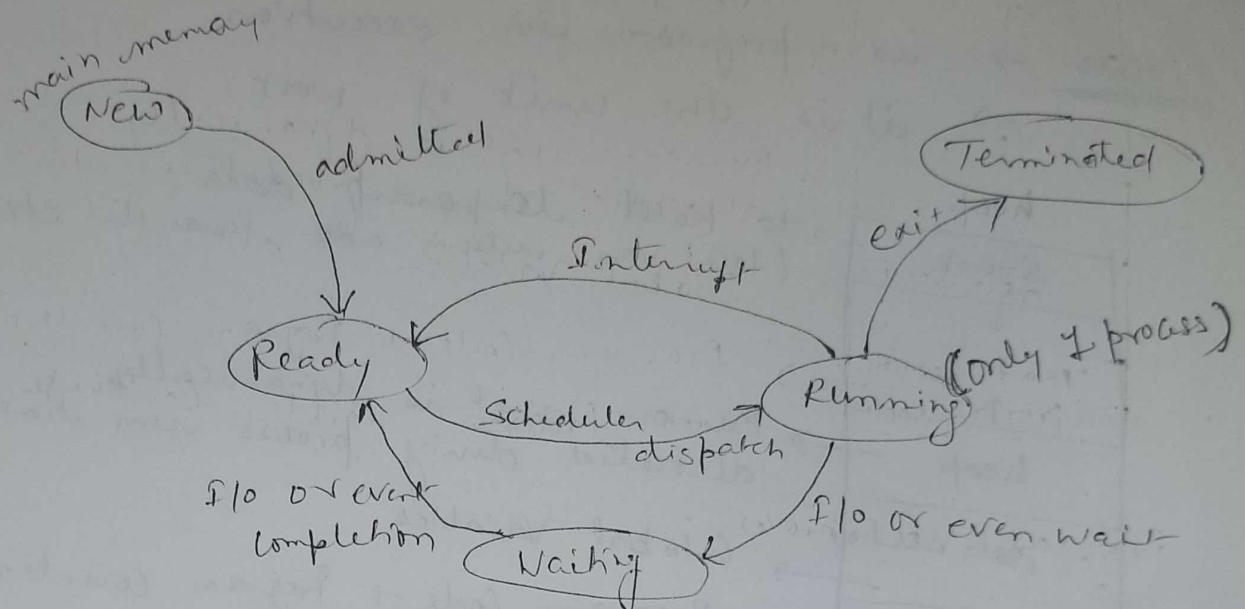 main memory
New
admitted
Terminated
exit
Interrupt
Ready
Running
(only 1 process)
Scheduler
dispatch
I/O or event
completion
I/O or even wait
Waiting